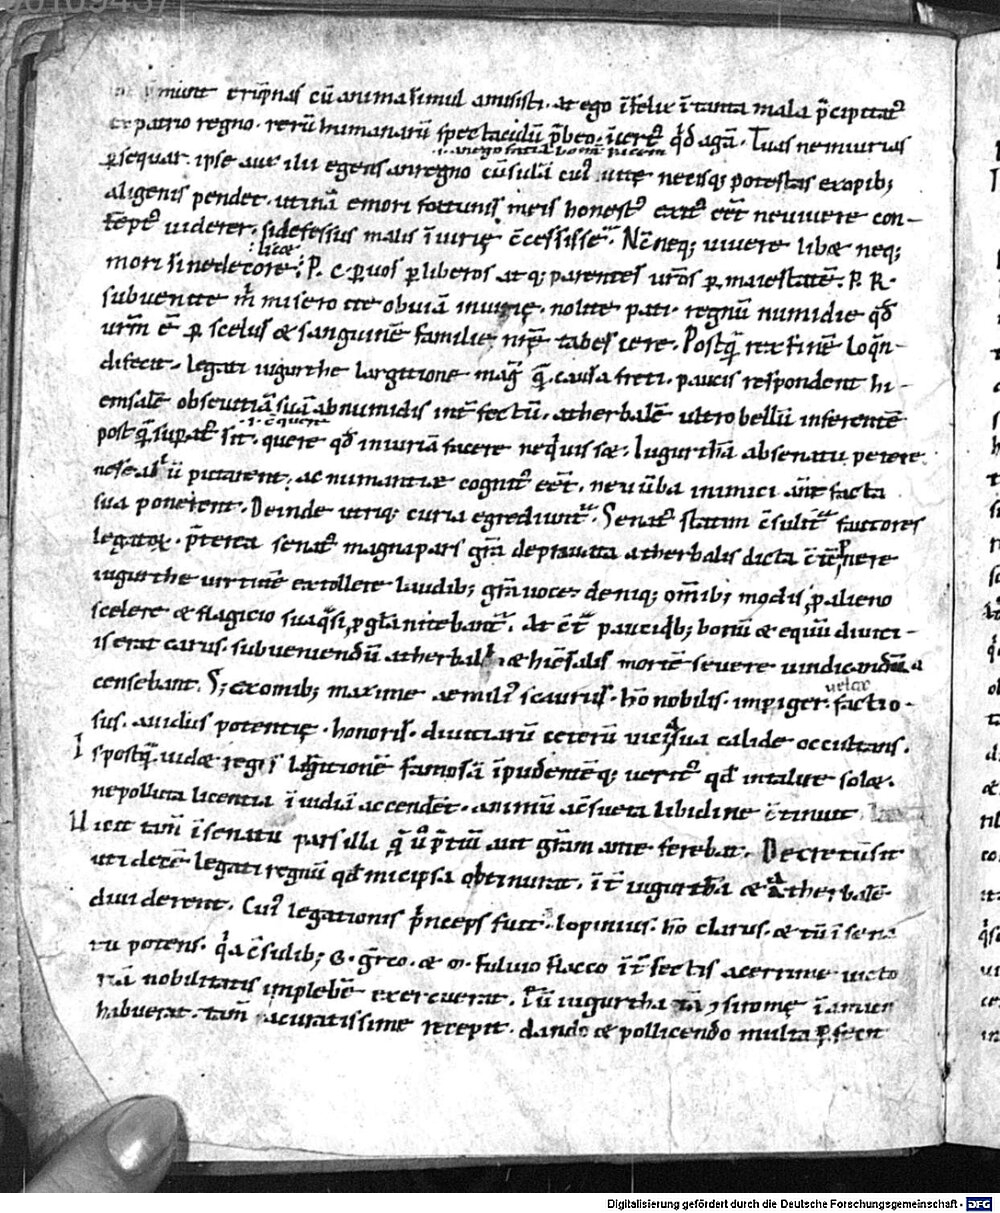 munt eripnas cū anima simul amisisti. at ego ī felix ī tanta mala p̄cipitat᷒
ex patrio regno. rerū humanarū spectaculū p̄beo. īcert᷒ qd̄ agā. Tuas ne iniurias
.i. an ego facia bonū
ꝑsequar. ipse auxilii egens an regno cūsulā cui᷒ uite necisq; potestas ex opib;
aligenis pendet. utinā emori fortunis meis honest᷒ exit᷒ eēt neu uiuere con-
tēpt᷒ uiderer. si defessus malis ī iurię c̄cessisse. Nc̄ neq; uiuere libæ neq;
licæ
mori sine decore. P. C. ꝑ uos ꝑ liberos atq; parentes uros̄ ꝑ maiestatē. P. R.
subuenite m̄ misero ite obuiā iniurię. nolite pati regnū numidie qd̄
urm̄ ē ꝑ scelus & sanguinē familie nrę̄ tabescere. Postq̄ rex finē loqn̄-
di fecit. legati iugurthe largitione mag᷒ q̄ causa freti. paucis respondent hi-
emsalē obseuitiā suā ab numidis int̄fectū. atherbalē ultro bellū inferentē
postq̄ supat᷒ sit. quere qd̄ iniuriā facere neqiuissæ. Iugurthā ab senatu petere
ne se aliū putarent. ac numantiæ cognit᷒ eēt. neu ūba inimici ante facta
sua ponerent. Deinde utriq; curia egrediunt᷒. Senat᷒ statim c̄sulit᷒ fautores
legatoꝝ. p̄terea senat᷒ magna pars gr̄a deprauata atherbalis dicta c̄tēpnere
iugurthe uirtutē extollere laudib; gr̄a uoce denique; omīb; modis ꝓ alieno
scelere & flagicio sua q̄si ꝓ gl̄a nitebant᷒. At c̄t᷒ pauci qib; bonū & equū diuici-
is erat carus. subueniendū atherbali & hiēsalis mortē seuere uindicandū a
censebant. S; ex omib; maxime aemili᷒ scaurus. hō nobilis. impiger. factio-
sus. auidus potentię. honoris. diuiciarū ceterū uicia sua calide occultans.
Is postq̄ uidæ regis largitionē famosā īpudentēq; uerit᷒ qd̄ in tali re solæ.
ne polluta licentia ī uidiā accendēt. animū a c̄sueta libidine c̄tinuit
Uicit tam̄ ī senatu pars illi q̄ uo p̄tiū aut gr̄am ante ferebat. Decretū sit
uti decē legati regnū qd̄ micipsa obtinuerat. īt᷒ iugurthā & Atherbalē
diuiderent. Cui᷒ legationis p̄nceps fuit. l opinius. hō clarus. & tū ī sena
tu potens. qia c̄sulib; G. gr̄co. & M. fuluio flacco īt᷒fectis acerrime uicto
riā nobilitatis in plebē exercuerat. Eū iugurtha
habuerat. tam̄ acuratissime recepit. dando & pollicendo multa ꝑfecit